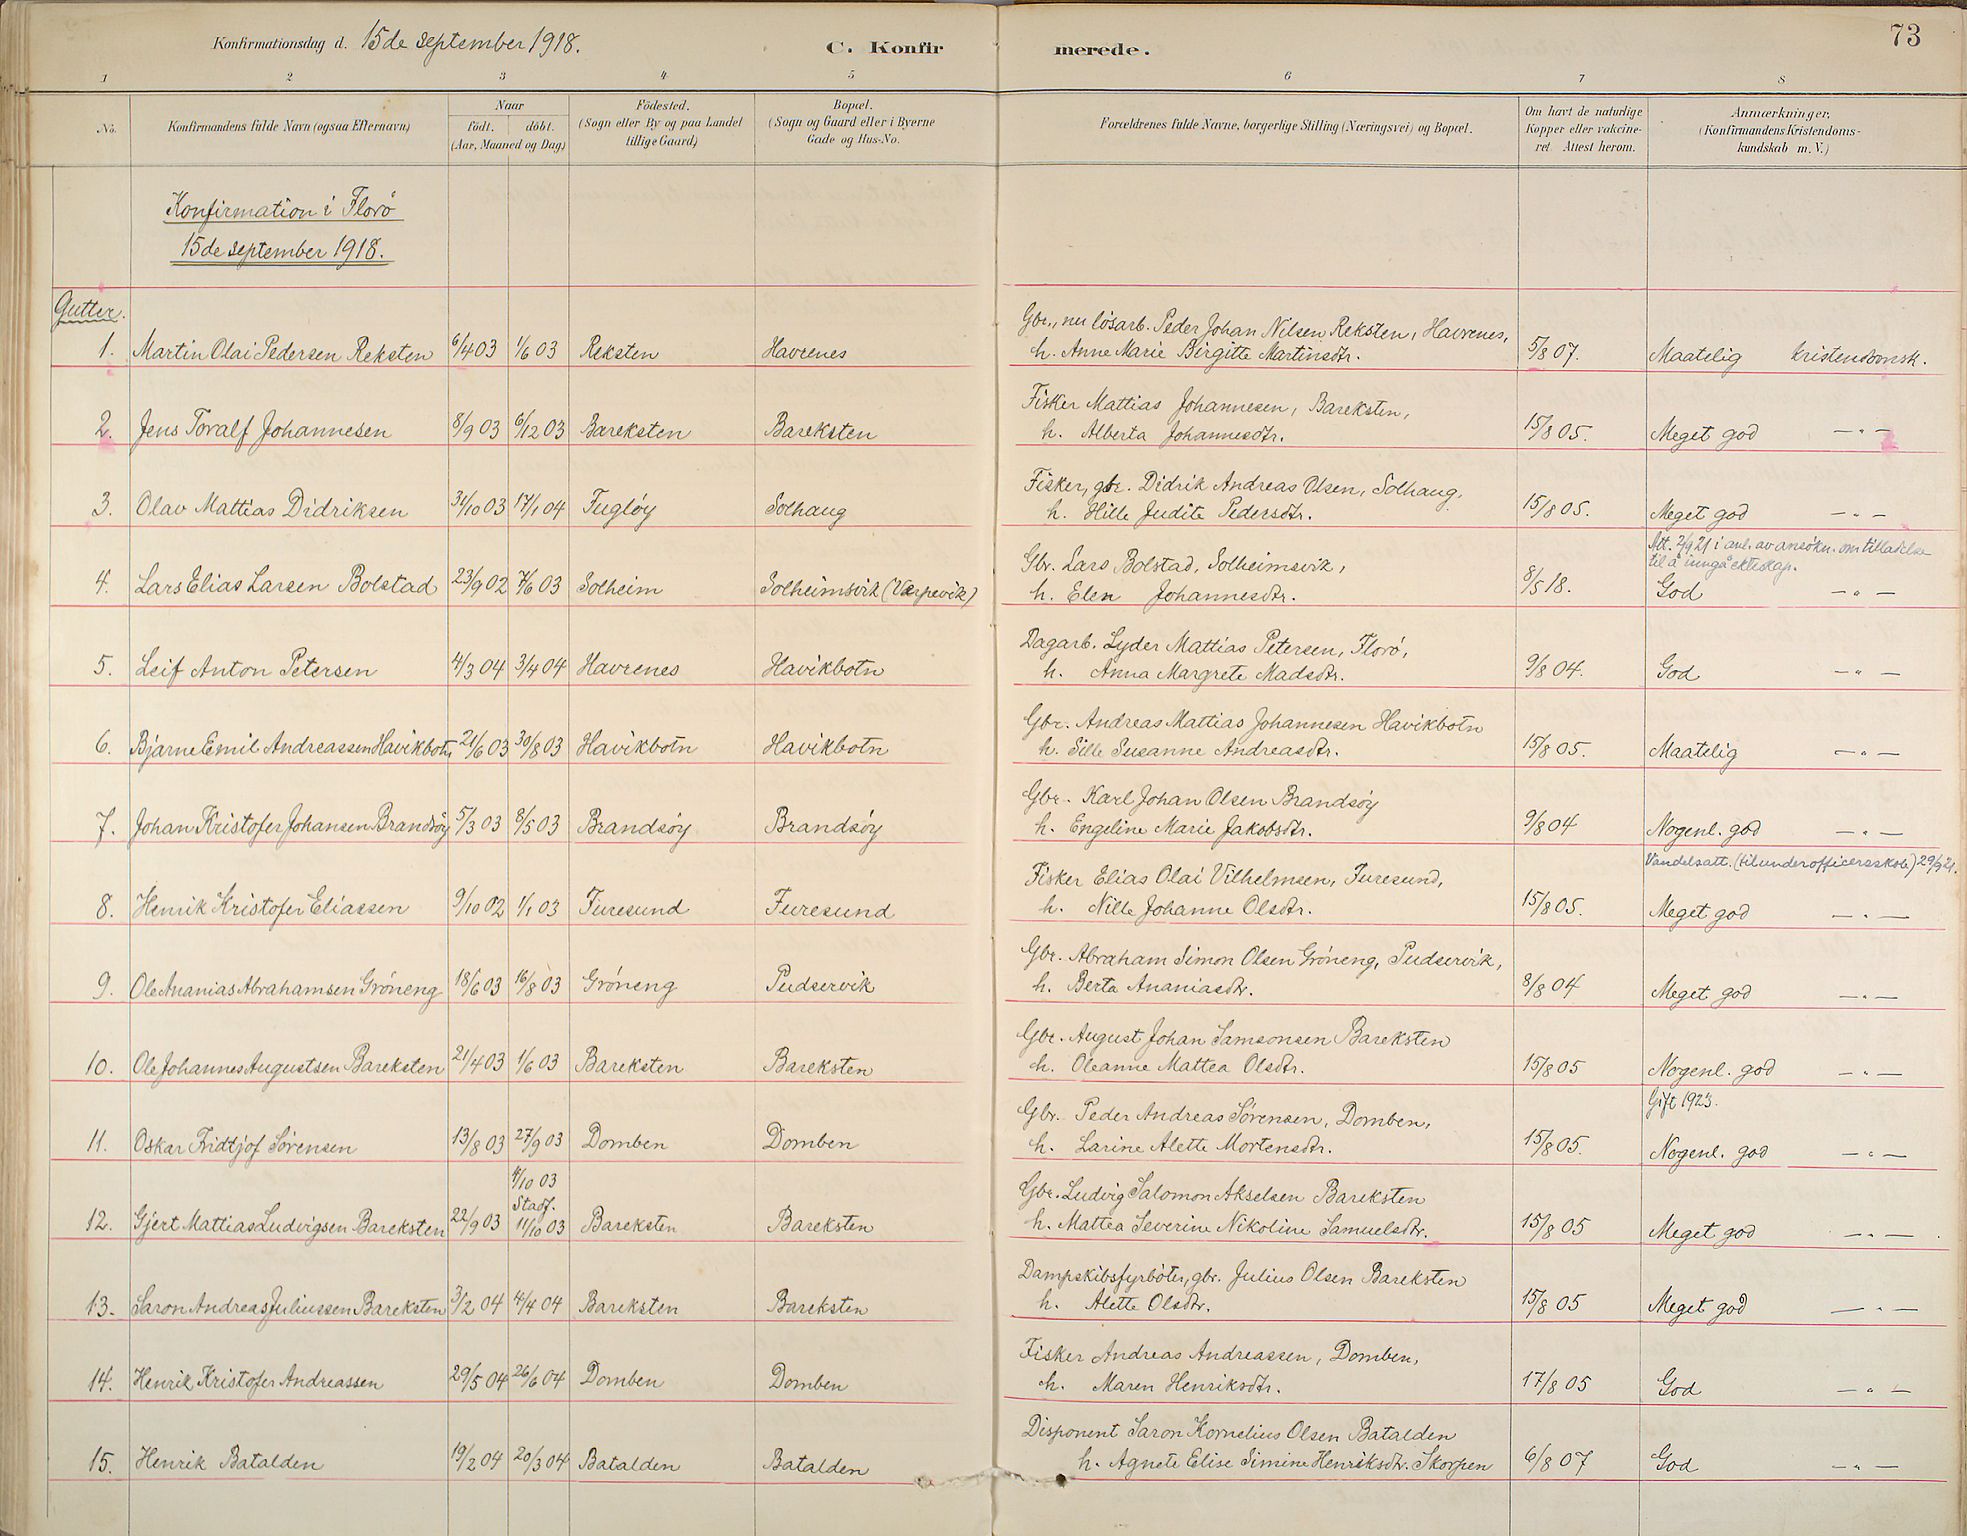 Konfirmationsdag d. 15de september 1918. C. Konfirmerede. 73
1 2 3 4 5 6 7 8
No. Konfirmandens fulde Navn (ogsaa Efternavn) Naar født. døbt. (Aar, Maaned og Dag) Fødested. (Sogn eller By og paa Landet tillige Gaard) Bopæl. (Sogn og Gaard eller i Byerne Gade og Hus-No. Forældrenes fulde Navne, borgerlige Stilling (Næringsvei) og Bopæl. Om havt de naturlige Kopper eller vakcineret. Attest herom. Anmærkninger, (Konfirmandens Kristendomskundskab m. V.)
Konfirmation i Florø
15de september 1918.
Gutter.
Gbr., nu løsarb. Peder Johan Nilsen Reksten, Havrenes,
1. Martin Olai Pedersen Reksten 6/4 03 1/6 03 Reksten Havrenes h. Anne Marie Birgitte Martinsdtr. 5/8 07. Maatelig kristendomsk.
Fisker Mattias Johannesen, Bareksten,
2. Jens Toralf Johannesen 8/9 03 6/12 03 Bareksten Bareksten h. Alberta Johannesdtr. 15/8 05. Meget god —"—
Fisker, gbr. Didrik Andreas Olsen, Solhaug,
3. Olav Mattias Didriksen 31/10 03 17/1 04 Fugløy Solhaug h. Hille Judite Pedersdtr. 15/8 05. Meget god —"—
Att. 2/9 21 i anl. av ansøkn. om tilladelse
til å inngå ekteskap.
Gbr. Lars Bolstad, Solheimsvik,
4. Lars Elias Larsen Bolstad 23/9 02 7/6 03 Solheim Solheimsvik (Værpevik) h. Elen Johannesdtr. 8/5 18. God —"—
Dagarb. Lyder Mattias Petersen, Florø,
5. Leif Anton Petersen 4/3 04 3/4 04 Havrenes Havikbotn h. Anna Margrete Madsdtr. 9/8 04. God —"—
Gbr. Andreas Mattias Johannesen Havikbotn
6. Bjarne Emil Andreassen Havikbotn 21/6 03 30/8 03 Havikbotn Havikbotn h. Sille Susanne Andreasdtr. 15/8 05. Maatelig —"—
Gbr. Karl Johan Olsen Brandsøy
7. Johan Kristofer Johansen Brandsøy 5/3 03 8/5 03 Brandsøy Brandsøy h. Engeline Marie Jakobsdtr. 9/8 04 Nogenl. god —"—
Vandelsatt. (til underofficersskole) 29/9 21.
Fisker Elias Olai Vilhelmsen, Furesund,
8. Henrik Kristofer Eliassen 9/10 02 1/1 03 Furesund Furesund h. Nille Johanne Olsdtr. 15/8 05. Meget god —"—
Gbr. Abraham Simon Olsen Grøneng, Pudservik,
9. Ole Ananias Abrahamsen Grøneng 18/6 03 16/8 03 Grøneng Pudservik h. Berta Ananiasdtr. 8/8 04 Meget god —"—
Gbr. August Johan Samsonsen Bareksten
10. Ole Johannes Augustsen Bareksten 21/4 03 1/6 03 Bareksten Bareksten h. Oleanne Mattea Olsdtr. 15/8 05 Nogenl. god —"—
Gift 1923.
Gbr. Peder Andreas Sørensen, Domben,
11. Oskar Fridtjof Sørensen 13/8 03 27/9 03 Domben Domben h. Larine Alette Mortensdtr. 15/8 05. Nogenl. god —"—
4/10 03
Stadf.
Gbr. Ludvig Salomon Akselsen Bareksten
12. Gjert Mattias Ludvigsen Bareksten 22/9 03 11/10 03 Bareksten Bareksten h. Mattea Severine Nikoline Samuelsdtr. 15/8 05 Meget god —"—
Dampskibsfyrbøter, gbr. Julius Olsen Bareksten
13. Saron Andreas Juliussen Bareksten 3/2 04 4/4 04 Bareksten Bareksten h. Alette Olsdtr. 15/8 05 Meget god —"—
Fisker Andreas Andreassen, Domben,
14. Henrik Kristofer Andreassen 29/5 04 26/6 04 Domben Domben h. Maren Henriksdtr. 17/8 05 God —"—
Disponent Saron Kornelius Olsen Batalden
15. Henrik Batalden 19/2 04 20/3 04 Batalden Batalden h. Agnete Elise Simine Henriksdtr. Skorpen 6/8 07 God —"—